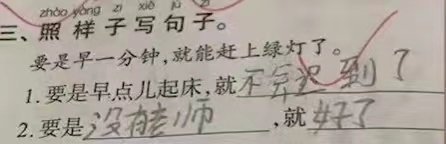 zhào yàng zi xiě jù zi
三、照样子写句子。
要是早一分钟,就能赶上绿灯了。
1.要是早点儿起床,就不会迟到了
2.要是没有老师,就好了